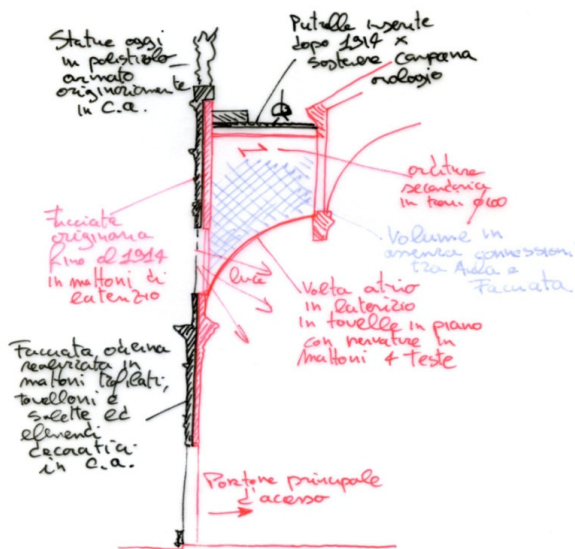 Statue oggi
in polistirolo
armato
originariamente
in C.A.
Putrelle inserite
dopo 1914 x
sostenere campana
orologio
orditura
secondaria
in travi
Facciata
originaria
fino al 1914
in mattoni di
laterizio
luce
Volume in
assenza connessione
tra Aula e
Facciata
Volta atrio
in laterizio
in tavelle in piano
con nervature in
mattoni 4 teste
Facciata odierna
realizzata in
mattoni trafilati,
tavelloni e
solette ed
elementi
decorativi
in C.A.
Portone principale
d'acesso